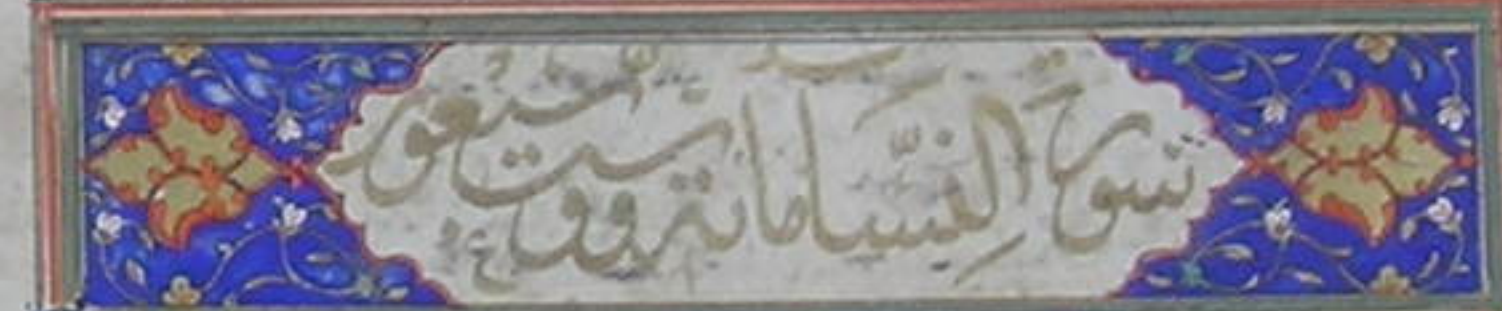 سورة النسا مائة وست وسبعون